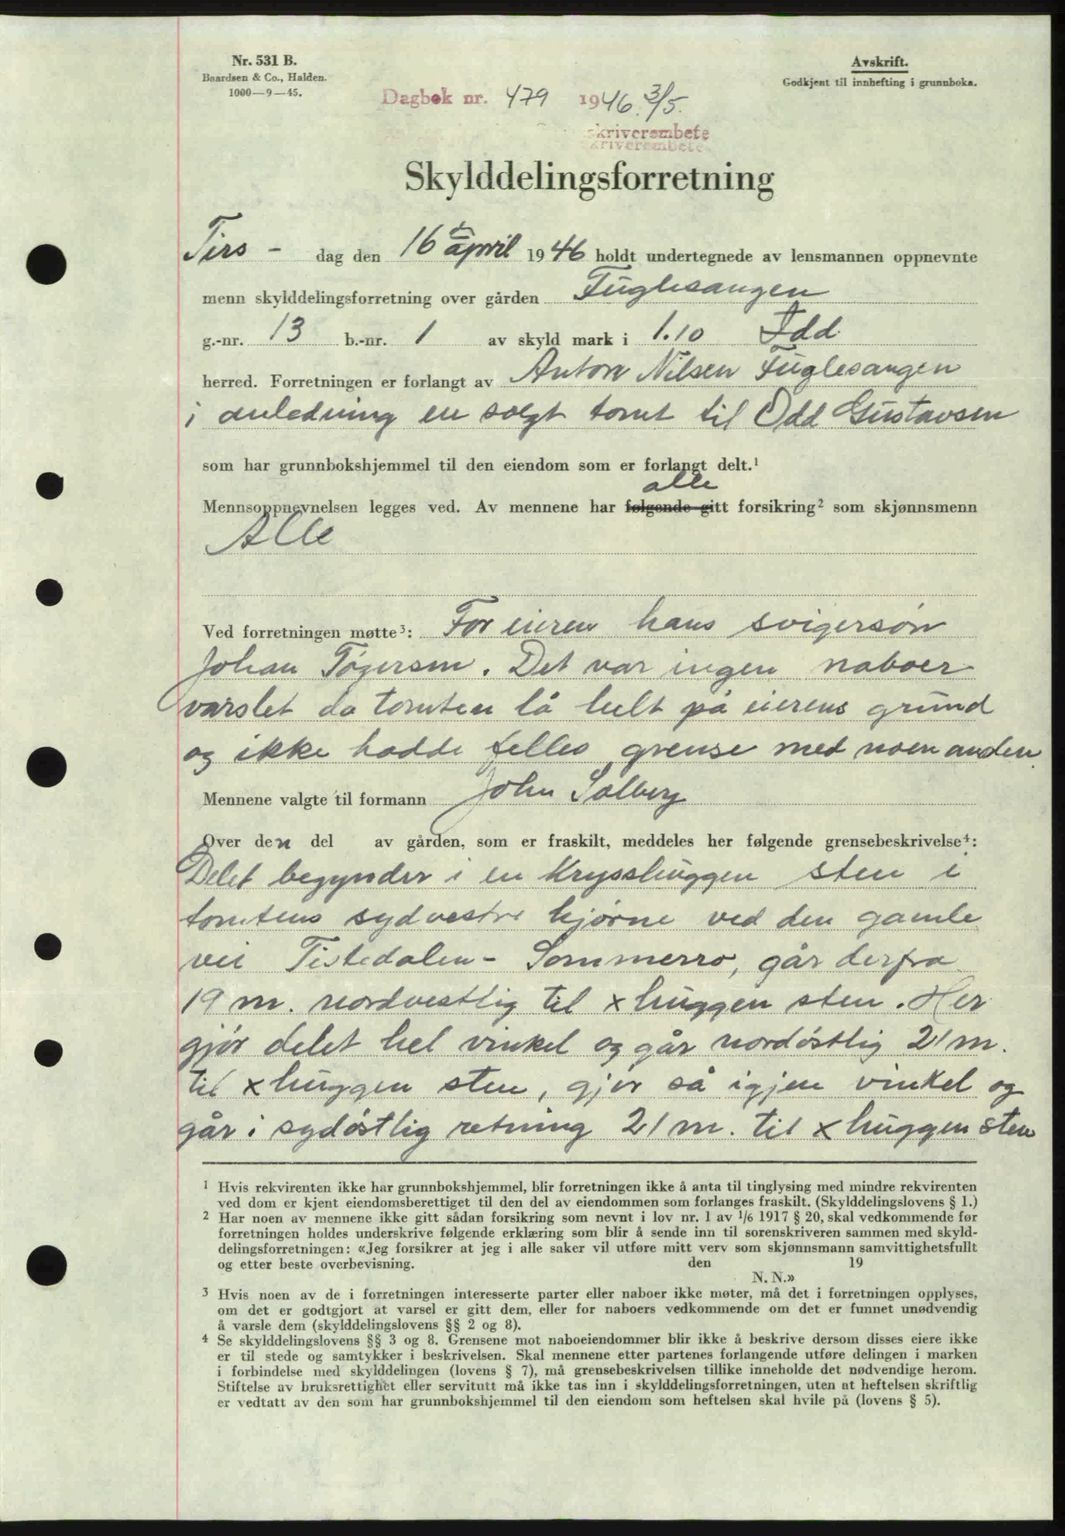 Nr. 531 B.
Baardsen & Co., Halden.
1000—9—45.
Avskrift.
Godkjent til innhefting i grunnboka.
Dagbok nr. 479 1946. 3/5.
skriverembete
skriverembete
Skylddelingsforretning
Tirs - dag den 16 april 1946 holdt undertegnede av lensmannen oppnevnte
menn skylddelingsforretning over gården Fuglesangen
g.-nr. 13 b.-nr. 1 av skyld mark i 1.10 Idd
herred. Forretningen er forlangt av Anton Nilsen Fuglesangen
i anledning en solgt tomt til Odd Gustavsen
som har grunnbokshjemmel til den eiendom som er forlangt delt.¹
alle
Mennsoppnevnelsen legges ved. Av mennene har følgende gitt forsikring² som skjønnsmenn
Alle
Ved forretningen møtte³: For eieren hans svigersøn
Johan Tøgersen. Det var ingen naboer
varslet da tomten lå helt på eierens grund
og ikke hadde felles grense med noen anden.
Mennene valgte til formann John Solberg
Over den del av gården, som er fraskilt, meddeles her følgende grensebeskrivelse⁴:
Delet begynder i en Krysshuggen sten i
tomtens sydvestre hjørne ved den gamle
vei Tistedalen - Sommerro, går derfra
19 m. nordvestlig til x huggen sten. Her
gjør delet hel vinkel og går nordøstlig 21 m.
til x huggen sten, gjør så igjen vinkel og
går i sydøstlig retning 21 m. til x huggen sten
¹ Hvis rekvirenten ikke har grunnbokshjemmel, blir forretningen ikke å anta til tinglysing med mindre rekvirenten
ved dom er kjent eiendomsberettiget til den del av eiendommen som forlanges fraskilt. (Skylddelingslovens § 1.)
² Har noen av mennene ikke gitt sådan forsikring som nevnt i lov nr. 1 av 1/6 1917 § 20, skal vedkommende før
forretningen holdes underskrive følgende erklæring som blir å sende inn til sorenskriveren sammen med skyld-
delingsforretningen: «Jeg forsikrer at jeg i alle saker vil utføre mitt verv som skjønnsmann samvittighetsfullt
og etter beste overbevisning. den 19
N. N.»
³ Hvis noen av de i forretningen interesserte parter eller naboer ikke møter, må det i forretningen opplyses,
om det er godtgjort at varsel er gitt dem, eller for naboers vedkommende om det er funnet unødvendig
å varsle dem (skylddelingslovens §§ 2 og 8).
⁴ Se skylddelingslovens §§ 3 og 8. Grensene mot naboeiendommer blir ikke å beskrive dersom disses eiere ikke
er til stede og samtykker i beskrivelsen. Skal mennene etter partenes forlangende utføre delingen i marken
i forbindelse med skylddelingen (lovens § 7), må grensebeskrivelsen tillike inneholde det nødvendige herom.
Stiftelse av bruksrettighet eller servitutt må ikke tas inn i skylddelingsforretningen, uten at heftelsen skriftlig
er vedtatt av den som har grunnbokshjemmel til den eiendom som heftelsen skal hvile på (lovens § 5).